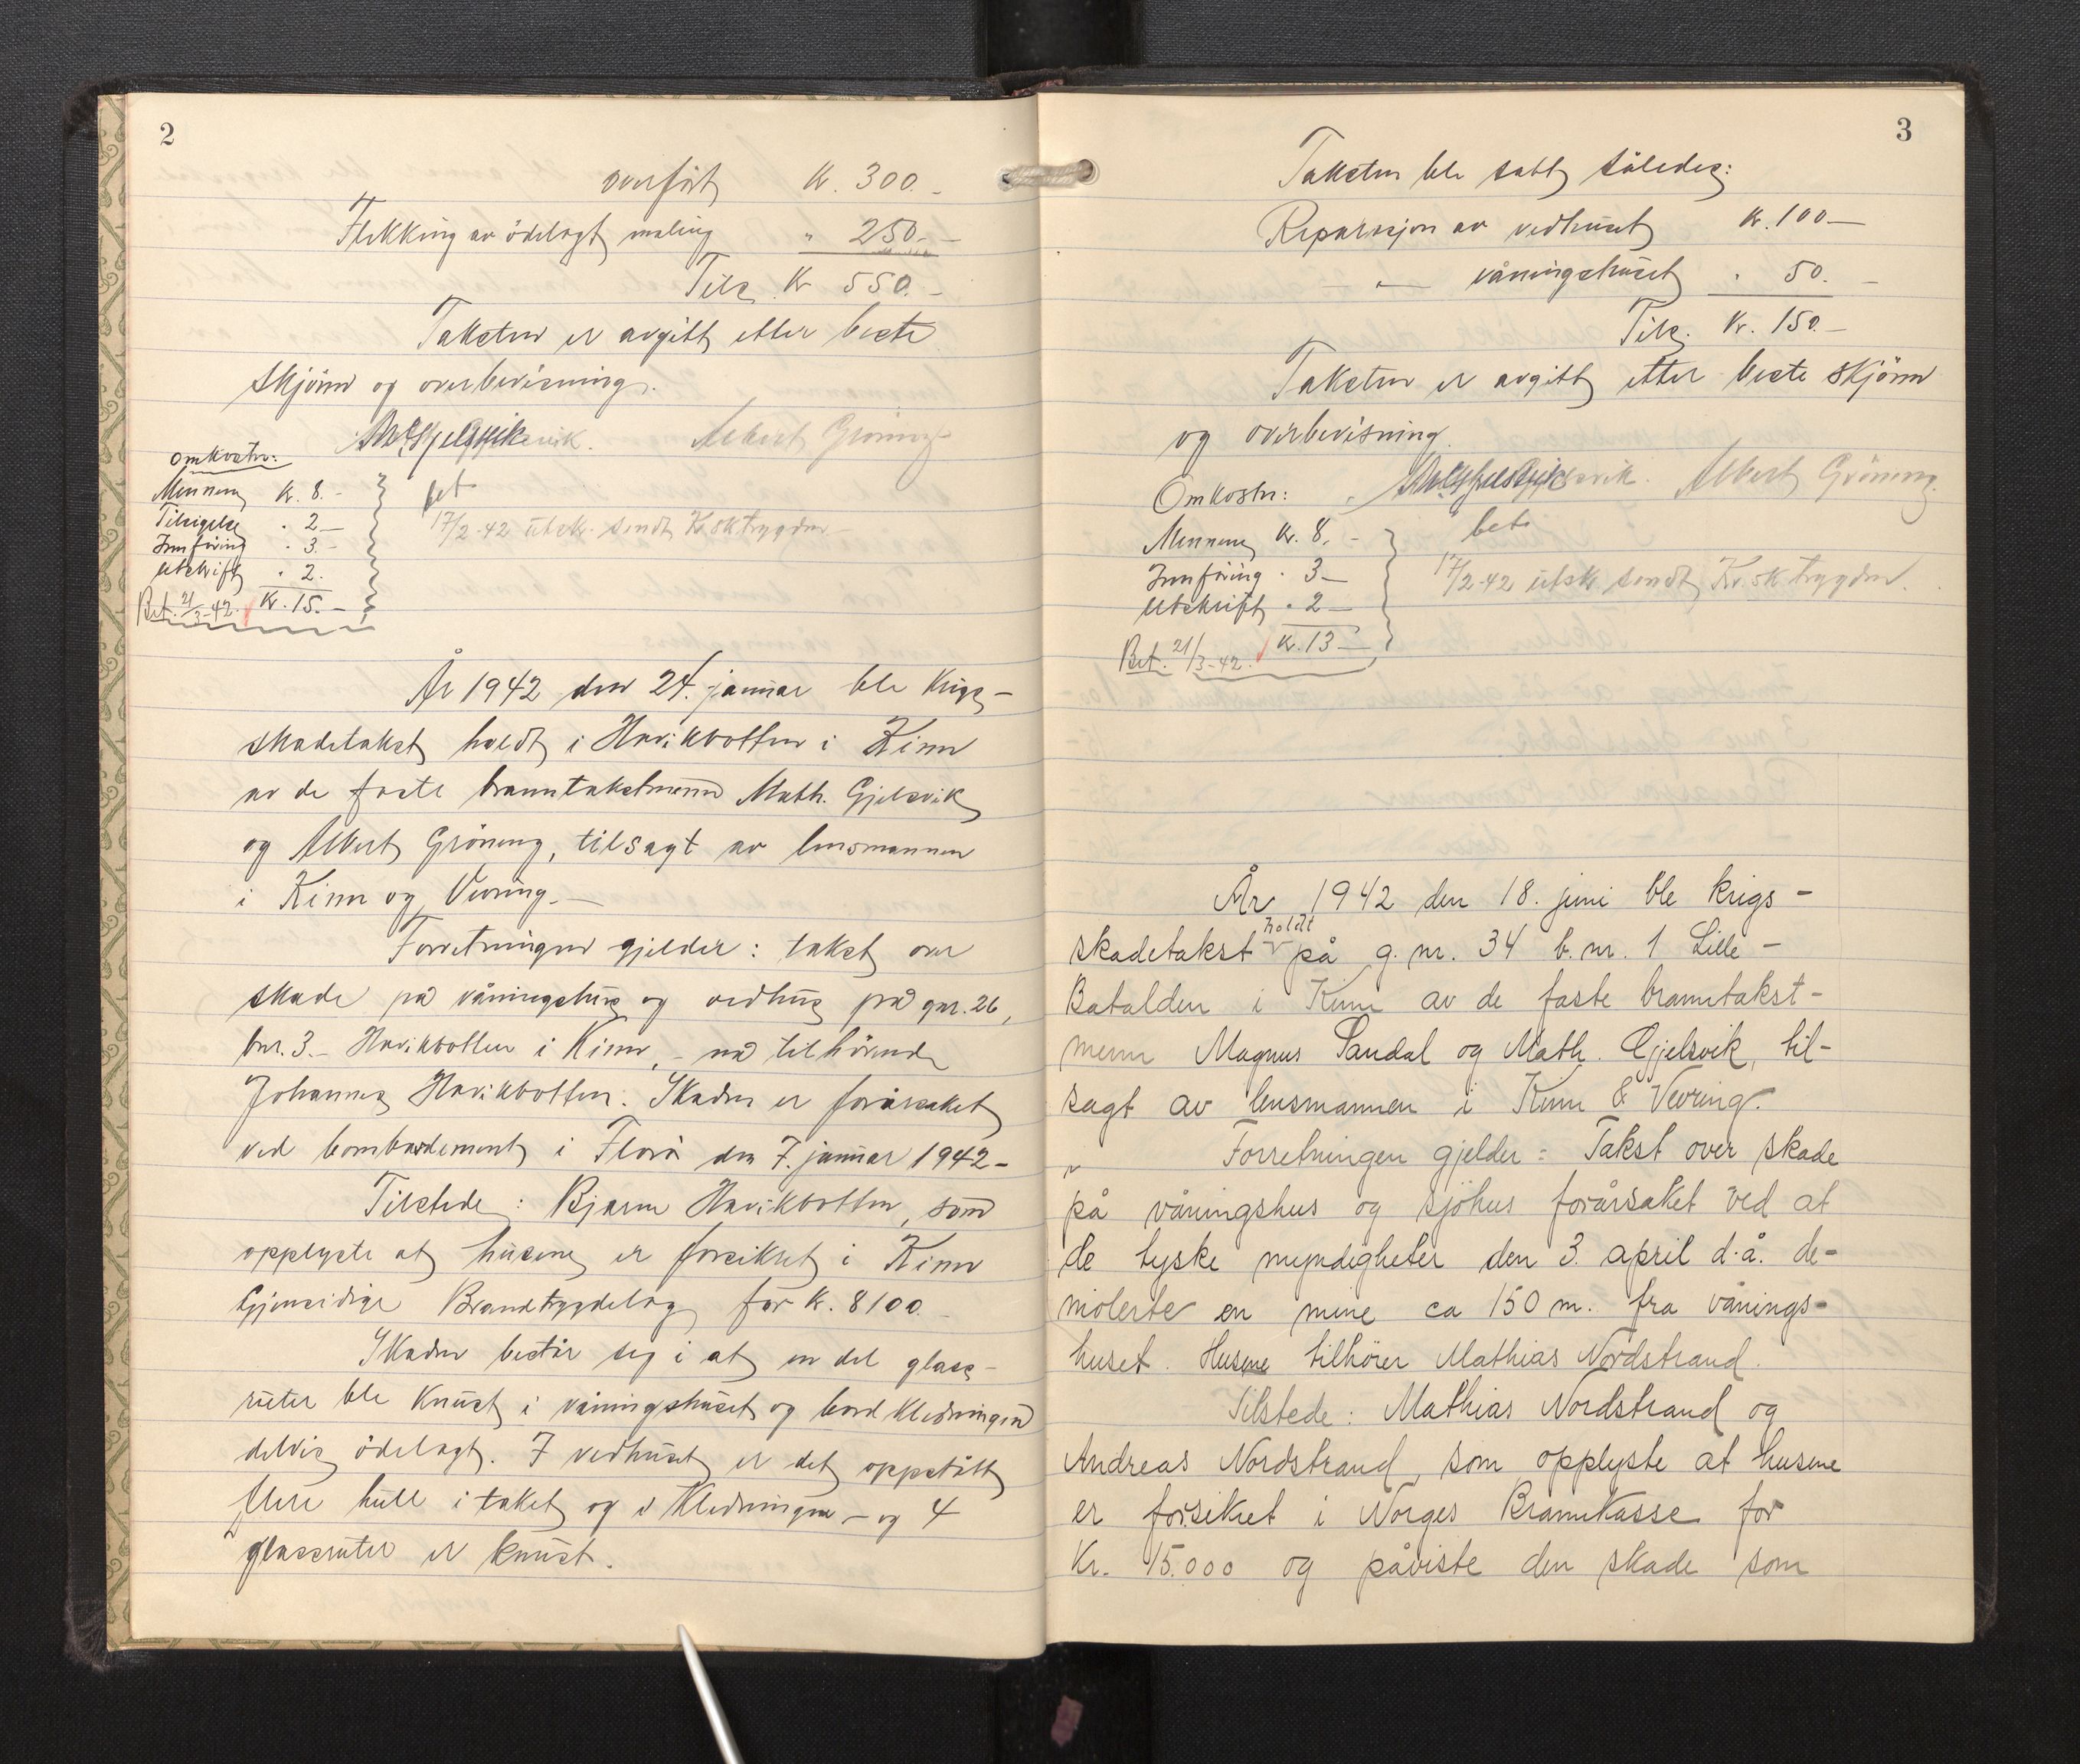 2
overført Kr. 300.-
Flekking av ødelagt maling " 250.-
Tils. Kr 550.-
Taksten er avgitt etter beste
skjønn og overbevisning.
Albert Gröning
Omkostn:
Mennene Kr. 8.-
Tilsigelse " 2 -
Innføring " 3.-
Utskrift " 2.
Bet. 21/3-42. Kr. 15.-
bet
17/2-42 utskr. sendt Kr.sktrygden
År 1942 den 24. januar ble krigs-
skadetakst holdt i Havikbotten i Kinn
av de faste branntakstmenn Math. Gjelsvik
og Albert Gröning, tilsagt av lensmannen
i Kinn og Vevring.-
Forretningen gjelder: takst over
skade på våningshus og vedhus på gnr. 26,
bnr. 3.- Havikbotten i Kinn, - nå tilhørende
Johannes Havikbotten. Skaden er forårsaket
ved bombardement i Florø den 7. januar 1942-
Tilstede: Bjarne Havikbotten, som
opplyste at husene er forsikret i Kinn
Gjensidige Brandtrygdelag for kr. 8100.-
Skaden består seg i at en del glass-
ruter ble knust i våningshuset og bordkledningen
delvis ødelagt. I vedhuset er det oppstått
flere hull i taket og i kledningen - og 4
glassruter er knust.
3
Taksten ble satt således:
Reparasjon av vedhuset kr. 100 -
" våningshuset " 50. -
Tils. Kr. 150.-
Taksten er avgitt etter beste skjønn
og overbevisning.
Albert Gröning.
Omkostn:
Mennene Kr. 8. -
Innføring " 3 -
Utskrift " 2 -
Bet. 21/3-42. Kr. 13 -
bet
17/2-42 utsk. sendt Kr.sktrygden.
År 1942 den 18. juni ble krigs-
skadetakst holdt på g. nr. 34 b. nr. 1 Lille-
Batalden i Kinn av de faste branntakst-
menn Magnus Sandal og Math. Gjelsvik, til-
sagt av lensmannen i Kinn & Vevring.
Forretningen gjelder: Takst over skade
på våningshus og sjöhus forårsaket ved at
de tyske myndigheter den 3. april d.å. de-
molerte en mine ca 150 m. fra vånings-
huset. Husene tilhører Mathias Nordstrand.
Tilstede: Mathias Nordstrand og
Andreas Nordstrand, som opplyste at husene
er forsikret i Norges Brannkasse for
Kr. 15.000 og påviste den skade som